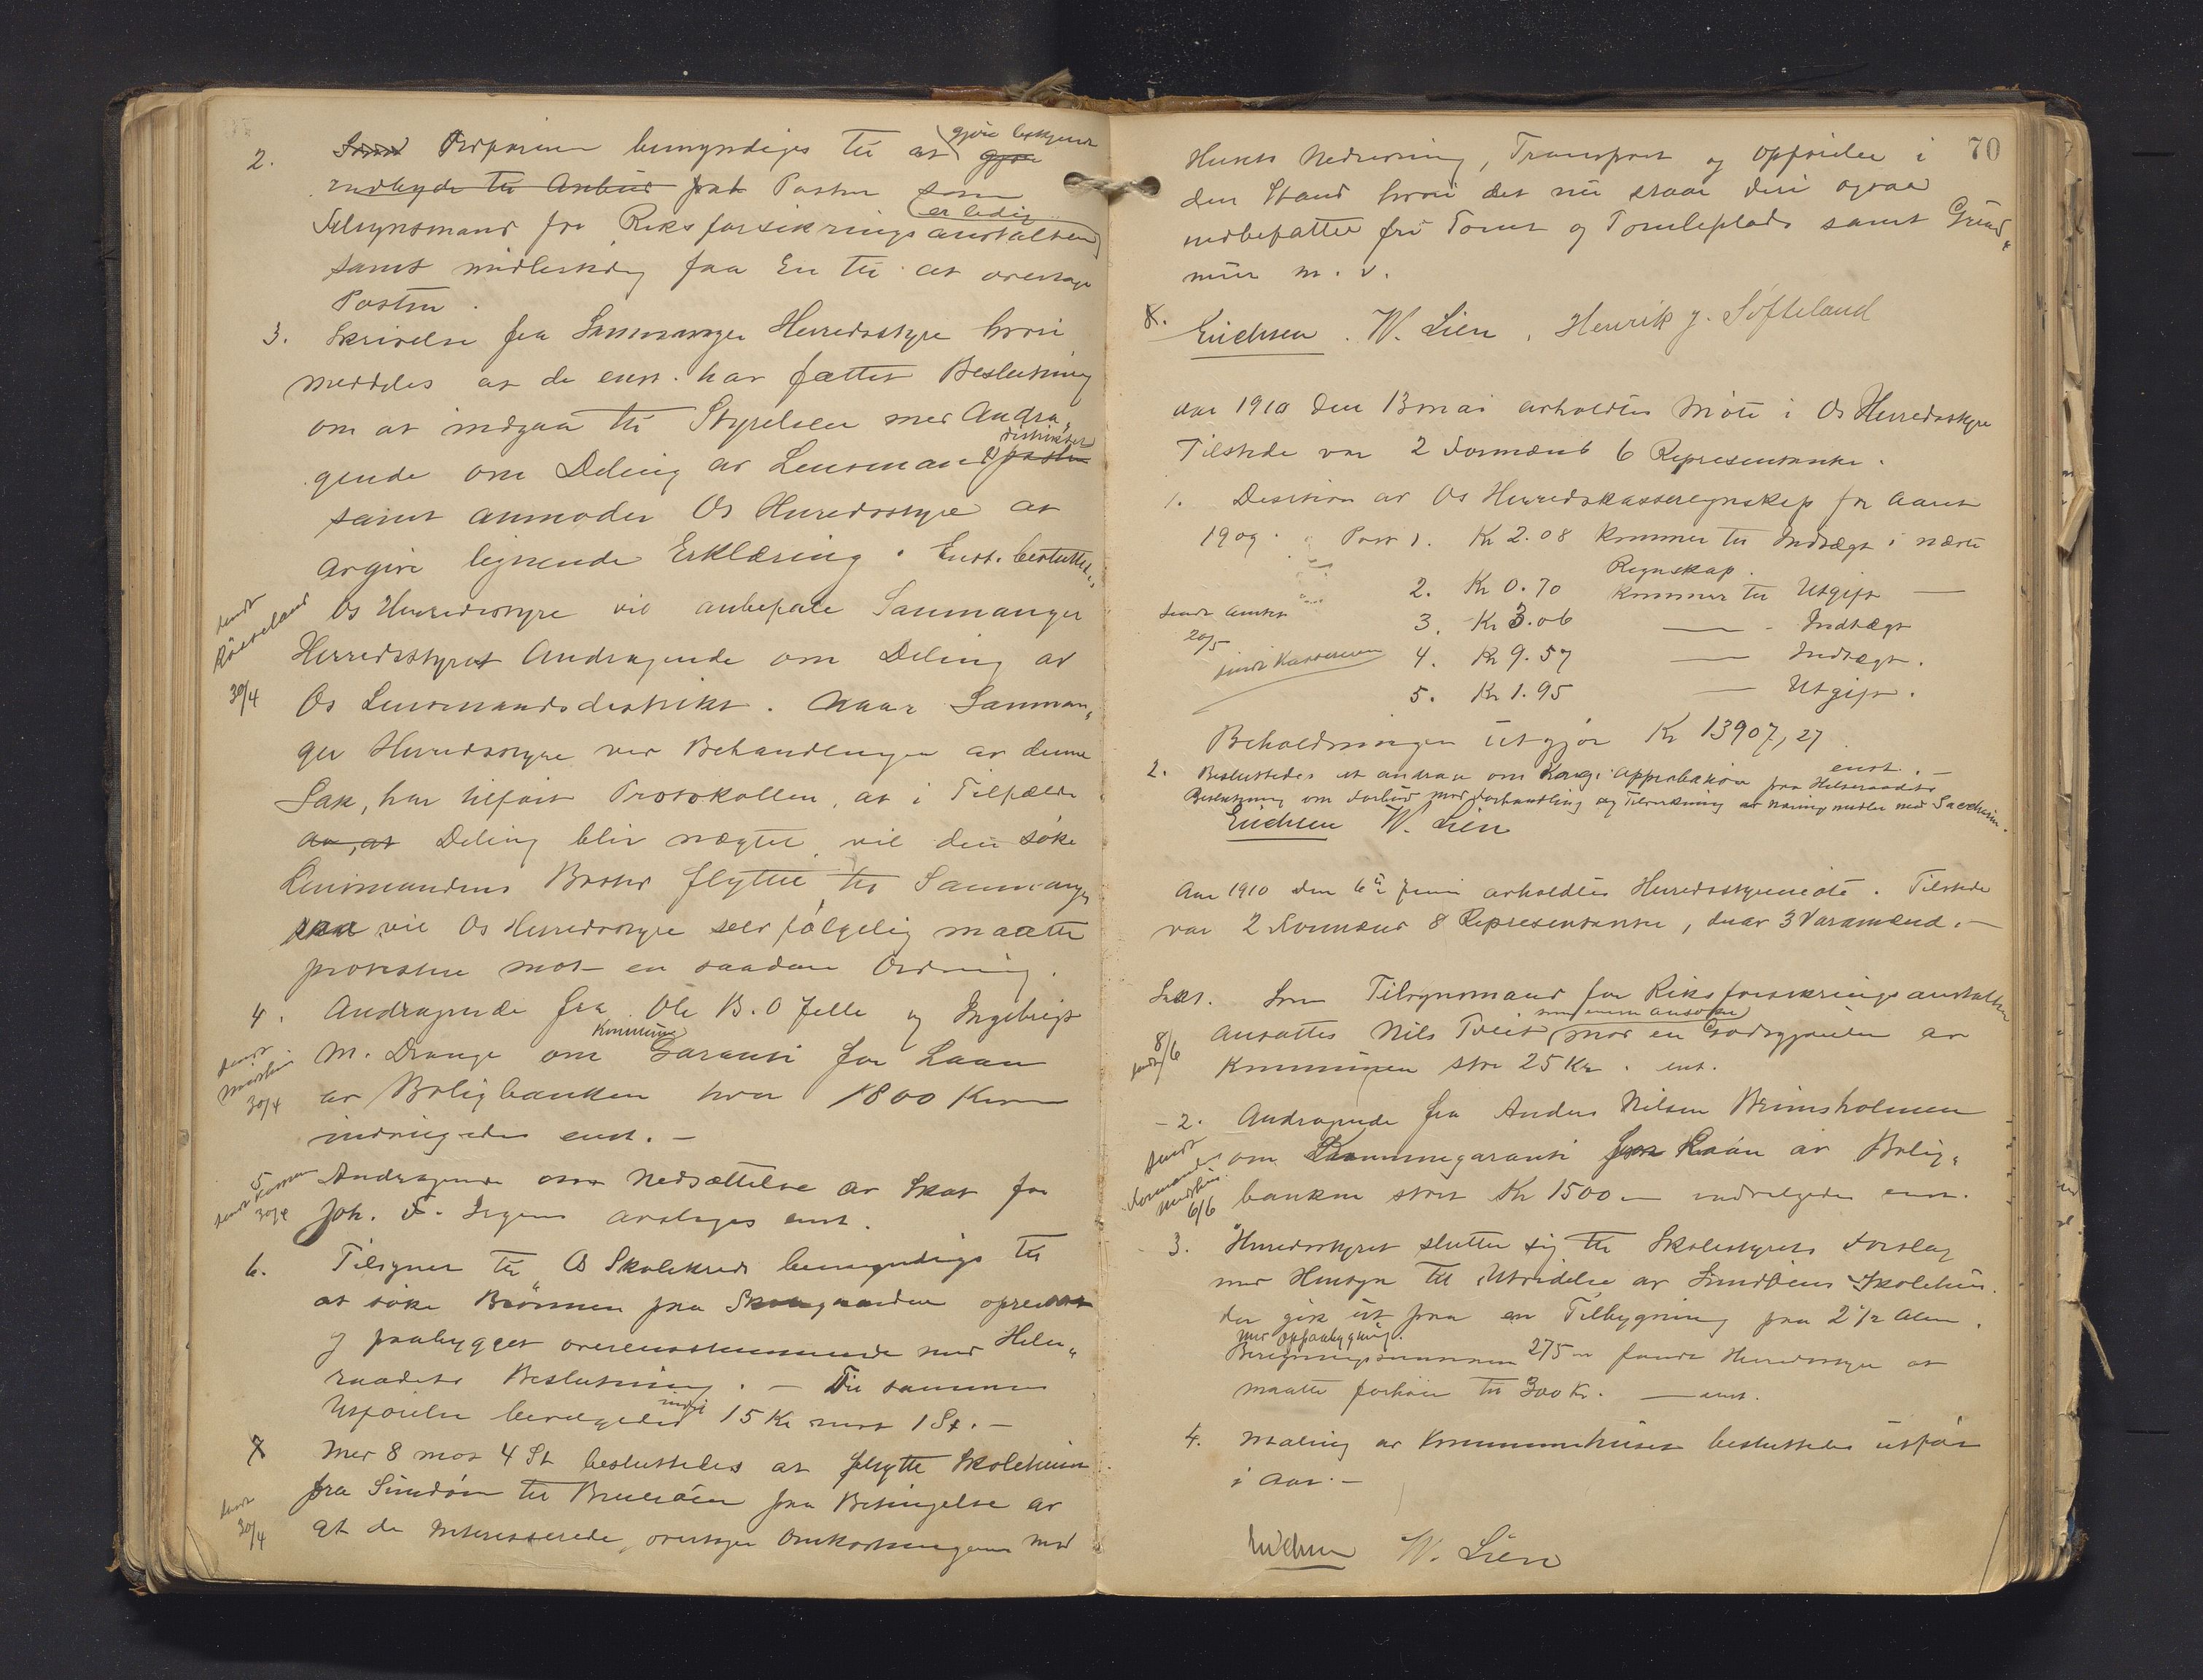 2. Ordføreren bemyndiges til at gjøre bekjent
indbyde til Anbud paa Posten som
er ledig
Tilsynsmand for Riksforsikringsanstalten
samt midlertidig faa En til at overtage
Posten.
3. Skrivelse fra Samnanger Herredsstyre hvori
meddeles at de enst. har fattet Beslutning
om at indgaa til Styrelsen med Andra„
distriktet
gende om Deling av Lensmands posten
samt anmoder Os Herredsstyre at
avgive lignende Erklæring. Enst. besluttedes
Os Herredsstyre vil anbefale Samnanger
Herredsstyret Andragende om Deling av
30/4
Os Lensmandsdistrikt. Naar Samnan„
ger Herredsstyre ved Behandlingen av denne
Sak, har tilført Protokollen, at i Tilfælde
av, at Deling blir nægtet, vil den søke
Lensmandens Bosted flyttet til Samnanger
saa vil Os Herredsstyre selvfølgelig maatte
protestere mot en saadan Ordning.
4. Andragende fra Ole B. O Felle og Ingebrigt
Kommune
M. Drange om Garanti for Laan
sendt
30/4
av Boligbanken hver 1800 Kroner
indvilgedes enst. —
5. Andragende om Nedsættelse av Skat for
sendt Kasser 30/4
Joh. F. Irgens avslages enst.
6. Tilsynet til Os Skolekreds bemyndiges til
at søke Brønnen paa Skolegaarden oprenset
og paabygget overensstemmende med Helse„
raadets Beslutning. — Til sammes
indtil
Utførelse bevilgedes 15 Kr mot 1 St. —
7 Med 8 mot 4 St besluttedes at flytte Skolehuset
fra Sundøen til Bruarøen paa Betingelse av
sendt
30/4
at de Interesserede overtager Omkostningerne med
70
Husets Nedrivning, Transport og Opførelse i
den Stand hvori det nu staar deri ogsaa
indbefattet fri Tomt og Tombeplads samt Grund„
mur m. v.
8.
Erichsen. W. Lien, Henrik J. Søfteland
Aar 1910 den 13 mai avholdtes Møte i Os Herredsstyre
Tilstede var 2 Formænd 6 Representanter.
1. Desision av Os Herredskasseregnskap for Aaret
1909. Post 1. Kr 2.08 kommer til Indtægt i næste
Regnskap.
2. Kr 0.70 kommer til Utgift —
sendt Amtet
20/5
3. Kr 3.06 — - Indtægt
sendt Kassereren
4. Kr 9.57 — Indtægt.
5. Kr 1.95 — Utgift.
Beholdningen utgjør Kr 13907,27
enst. —
2. Besluttedes at andrage om Kongl. Approbation paa Helseraadets
Beslutning om Forbud mot Forhandling og Tilvirkning av Næringsmidler med Sacchrin.
Erichsen W. Lien
Aar 1910 den 6te Juni avholdtes Herredsstyremøte. Tilstede
var 2 Formænd 8 Representanter, derav 3 Varamænd. —
Sak 1. Som Tilsynsmand for Riksforsikringsanstalten
som eneste ansøker
ansattes Nils Tveit mot en Godtgjørelse av
sendt 8/6
Kommunen stor 25 Kr. enst.
- 2. Andragende fra Anders Nilsen Vrimsholmen
sendt
om Kommunegaranti for Laan av Bolig„
6/6
banken stort Kr 1500 — indvilgedes enst.
- 3. Herredsstyret slutter sig til Skolestyrets Forslag
med Hensyn til Utvidelse av Sundøens Skolehus.
der gik ut paa en Tilbygning paa 2 1/2 Alen.
med oppaabygning.
Beregningssummen 275 — fandt Herredsstyret at
maatte forhøie til 300 Kr. — enst.
4. Maling av Kommunehuset besluttedes utført
i Aar. —
Erichsen W. Lien